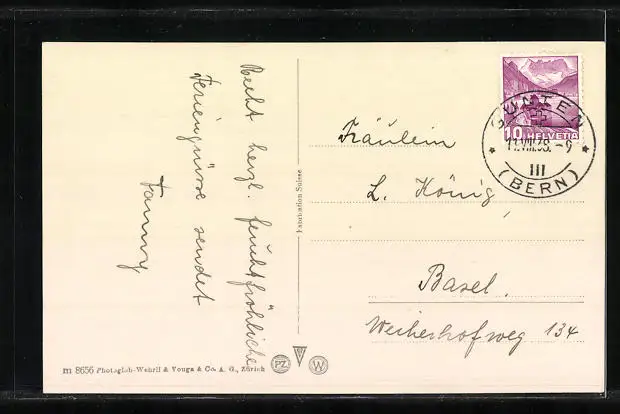 Recht herzl. feuchtfröhliche
Feriengrüsse sendet
Fanny
Fabrication Suisse
Fräulein
L. König
Basel.
Weiherhofweg 134
10 HELVETIA
GUNTEN
11.VIII.38.-9
III
(BERN)
m 8656 Photoglob-Wehrli & Vouga & Co. A. G., Zürich
PZ
W